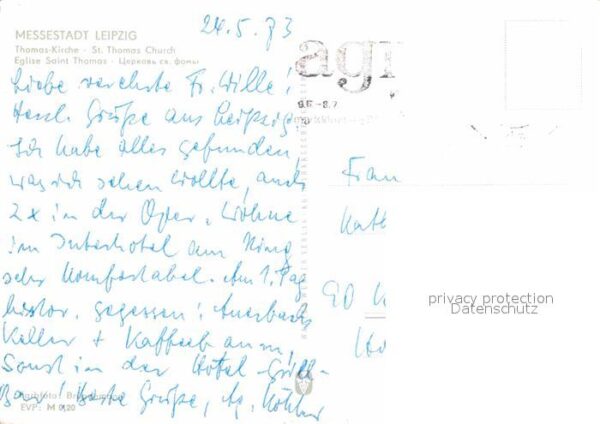 24.5.83
MESSESTADT LEIPZIG
Thomas-Kirche · St. Thomas Church
Eglise Saint Thomas · Церковь св. Фомы
Liebe verehrte Fr. Wille!
Herzl. Grüße aus Leipzig.
Ich habe alles gefunden,
was ich sehen wollte, auch
2x in der Oper. Wohne
im Interhotel am Ring
sehr komfortabel. Am 1. Tag
histor. gegessen: Auerbachs
Keller + Kaffeebaum,
Sonst in der Hotel-Grill-
Bar! Beste Grüße, Ihr Köhler
EVP: M 0,20
agr
9.6-8.7
Frau
Kath
privacy protection
Datenschutz